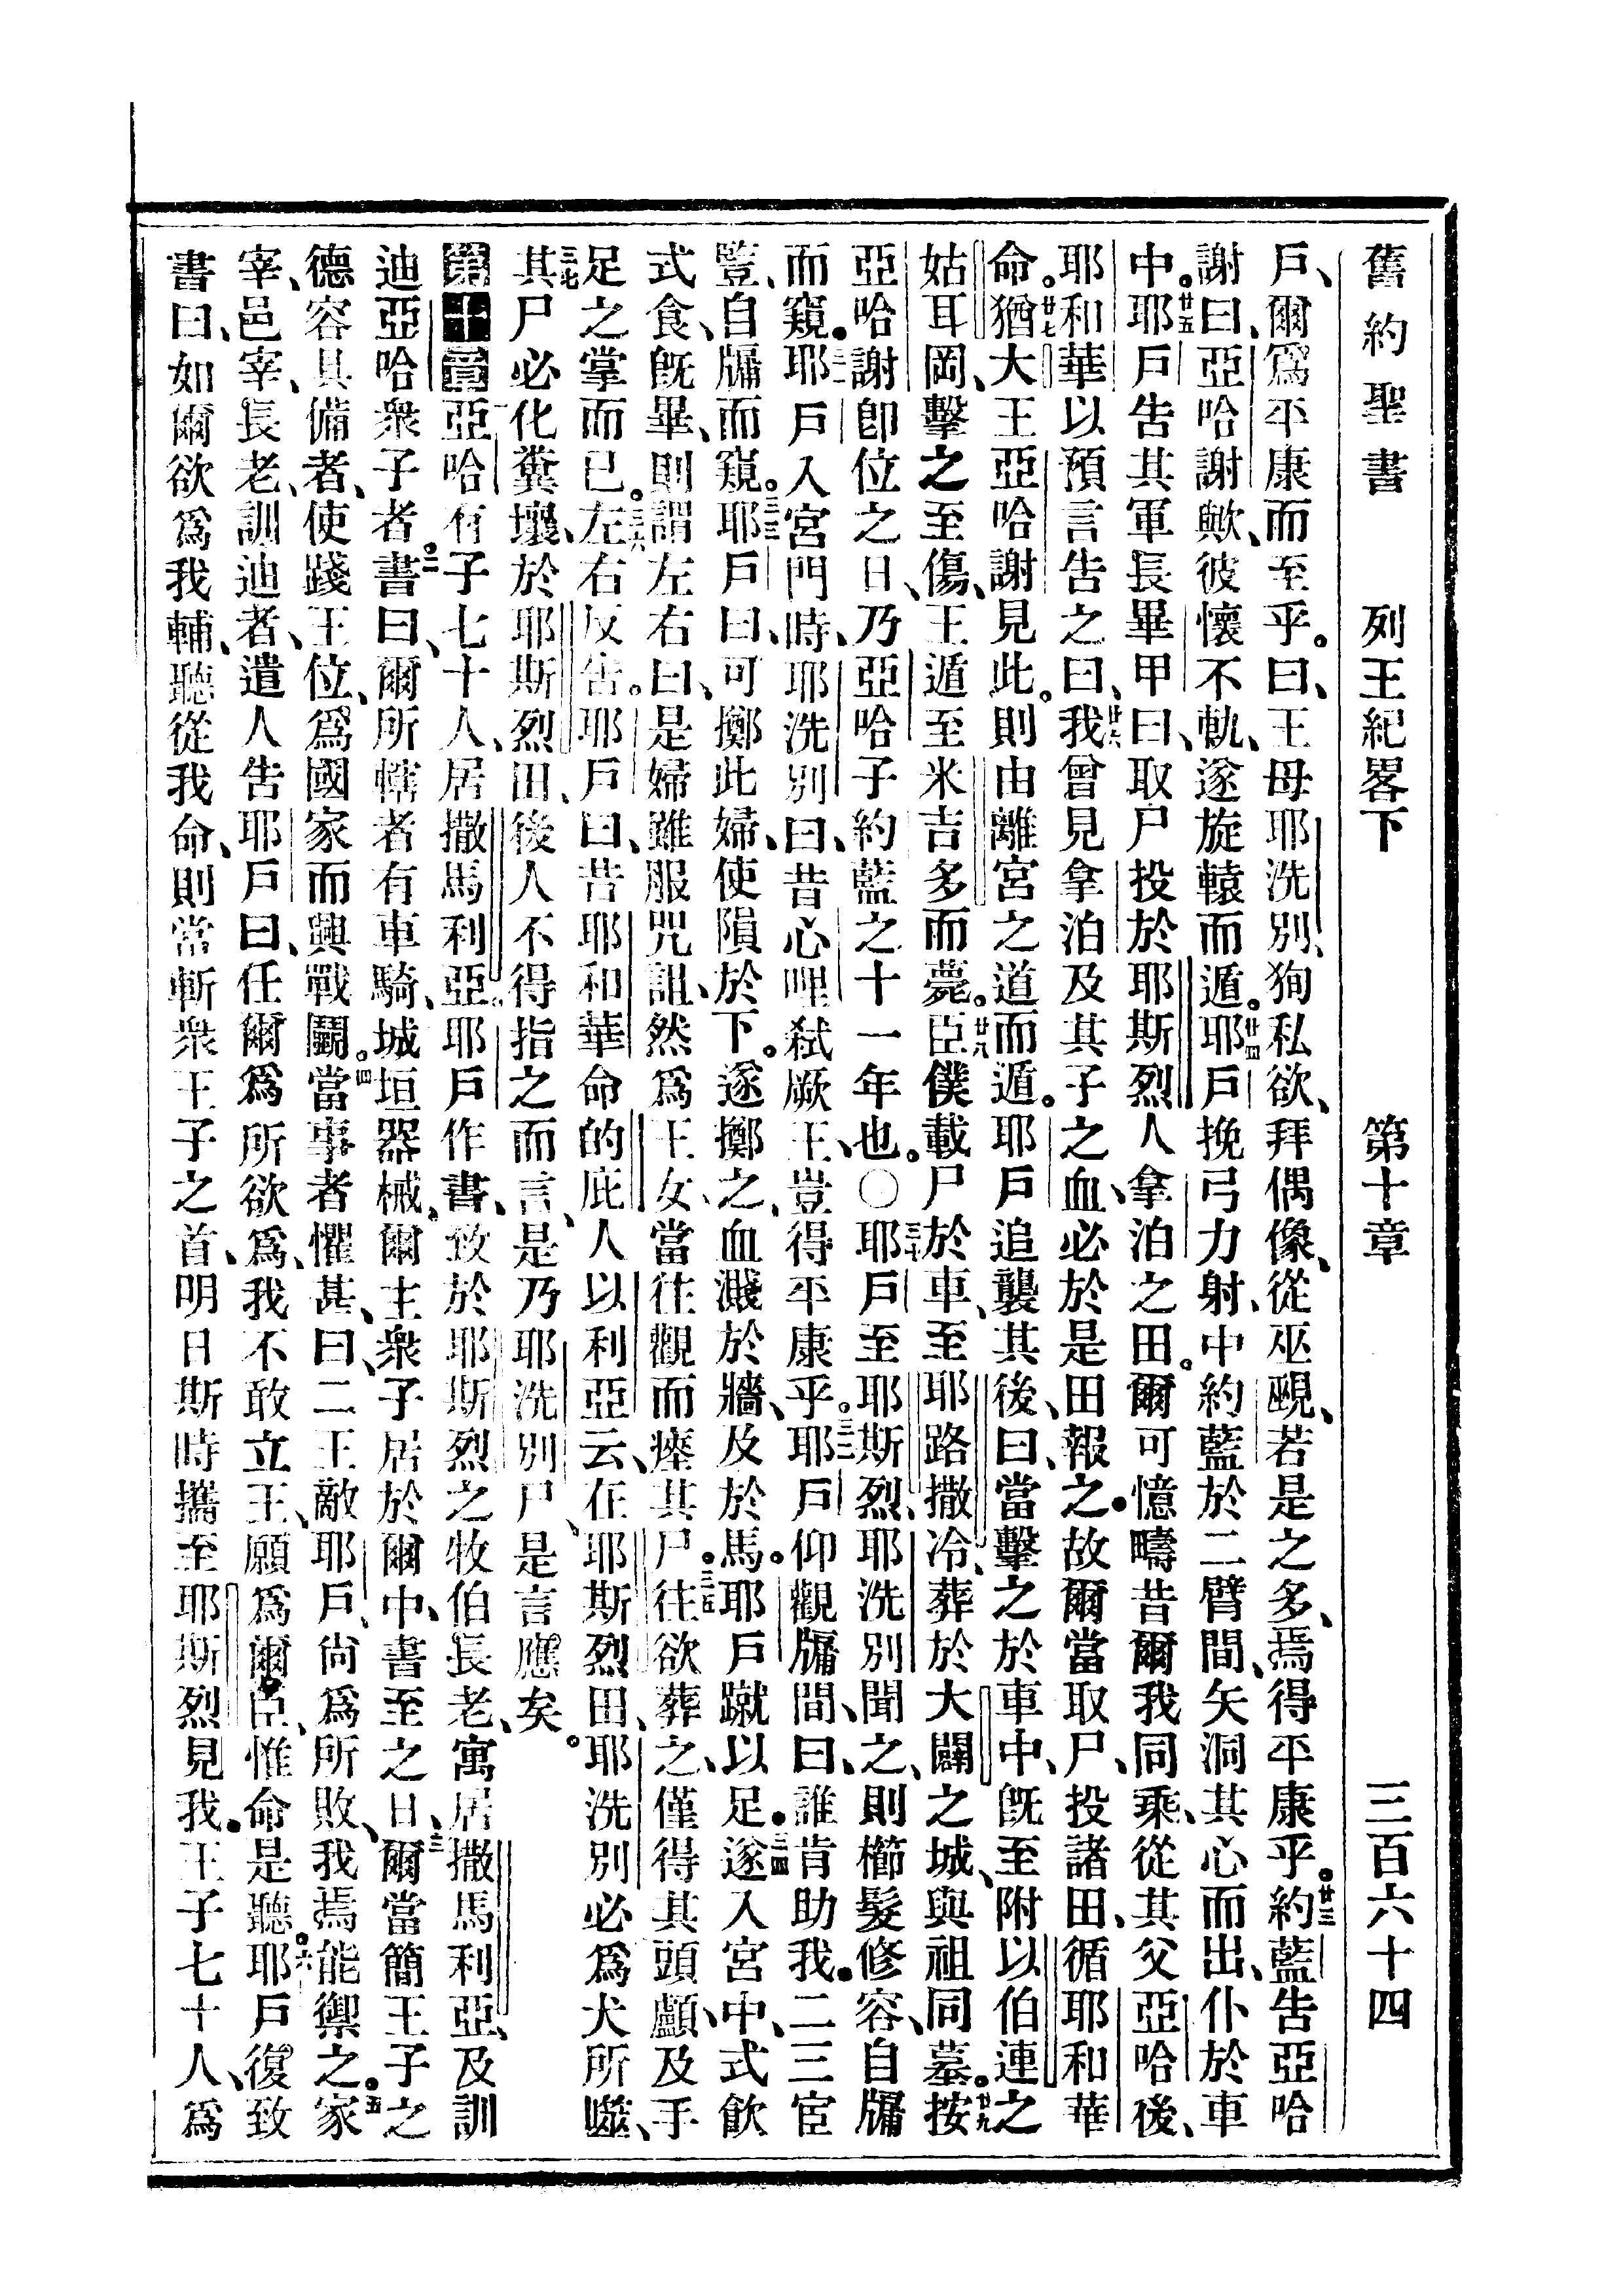 舊約聖書 列王紀畧下 第十章 三百六十四
戶、爾爲平康而至乎。曰、王母耶洗別、狥私欲、拜偶像、從巫覡、若是之多、焉得平康乎。廿三約藍告亞哈
謝曰、亞哈謝歟、彼懷不軌、遂旋轅而遁。廿四耶戶挽弓力射、中約藍於二臂間、矢洞其心而出、仆於車
中。廿五耶戶告其軍長畢甲曰、取尸投於耶斯烈人拿泊之田。爾可憶疇昔爾我同乘、從其父亞哈後、
耶和華以預言告之曰、廿六我曾見拿泊及其子之血、必於是田報之。故爾當取尸、投諸田、循耶和華
命。廿七猶大王亞哈謝見此。則由離宮之道而遁。耶戶追襲其後、曰、當擊之於車中、旣至附以伯連之
姑耳岡、擊之至傷、王遁至米吉多而薨。廿八臣僕載尸於車、至耶路撒冷、葬於大闢之城、與祖同墓。廿九按
亞哈謝卽位之日、乃亞哈子約藍之十一年也。〇三十耶戶至耶斯烈、耶洗別聞之、則櫛髮修容、自牖
而窺。三一耶戶入宮門時、耶洗別曰、昔心哩弒厥王、豈得平康乎。三二耶戶仰觀牖間、曰、誰肯助我。二三宦
豎、自牖而窺。三三耶戶曰、可擲此婦、使隕於下。遂擲之、血濺於牆、及於馬。耶戶蹴以足。三四遂入宮中、式飮
式食、旣畢、則謂左右曰、是婦雖服咒詛、然爲王女、當往觀而瘞其尸。三五往欲葬之、僅得其頭顱、及手
足之掌而已。三六左右反告。耶戶曰、昔耶和華命的庇人以利亞云、在耶斯烈田、耶洗別必爲犬所噬、
三七其尸必化糞壤、於耶斯烈田、後人不得指之而言、是乃耶洗別尸、是言應矣。
第十章 一亞哈有子七十人、居撒馬利亞。耶戶作書、致於耶斯烈之牧伯長老、寓居撒馬利亞、及訓
迪亞哈衆子者。二書曰、爾所轄者有車騎、城垣器械、爾主衆子居於爾中、書至之日、三爾當簡王子之
德容具備者、使踐王位、爲國家而興戰鬬。四當事者懼甚、曰、二王敵耶戶、尙爲所敗、我焉能禦之。五家
宰、邑宰、長老、訓迪者、遣人告耶戶曰、任爾爲所欲爲、我不敢立王、願爲爾臣、惟命是聽。六耶戶復致
書曰、如爾欲爲我輔、聽從我命、則當斬衆王子之首、明日斯時攜至耶斯烈見我。王子七十人、爲